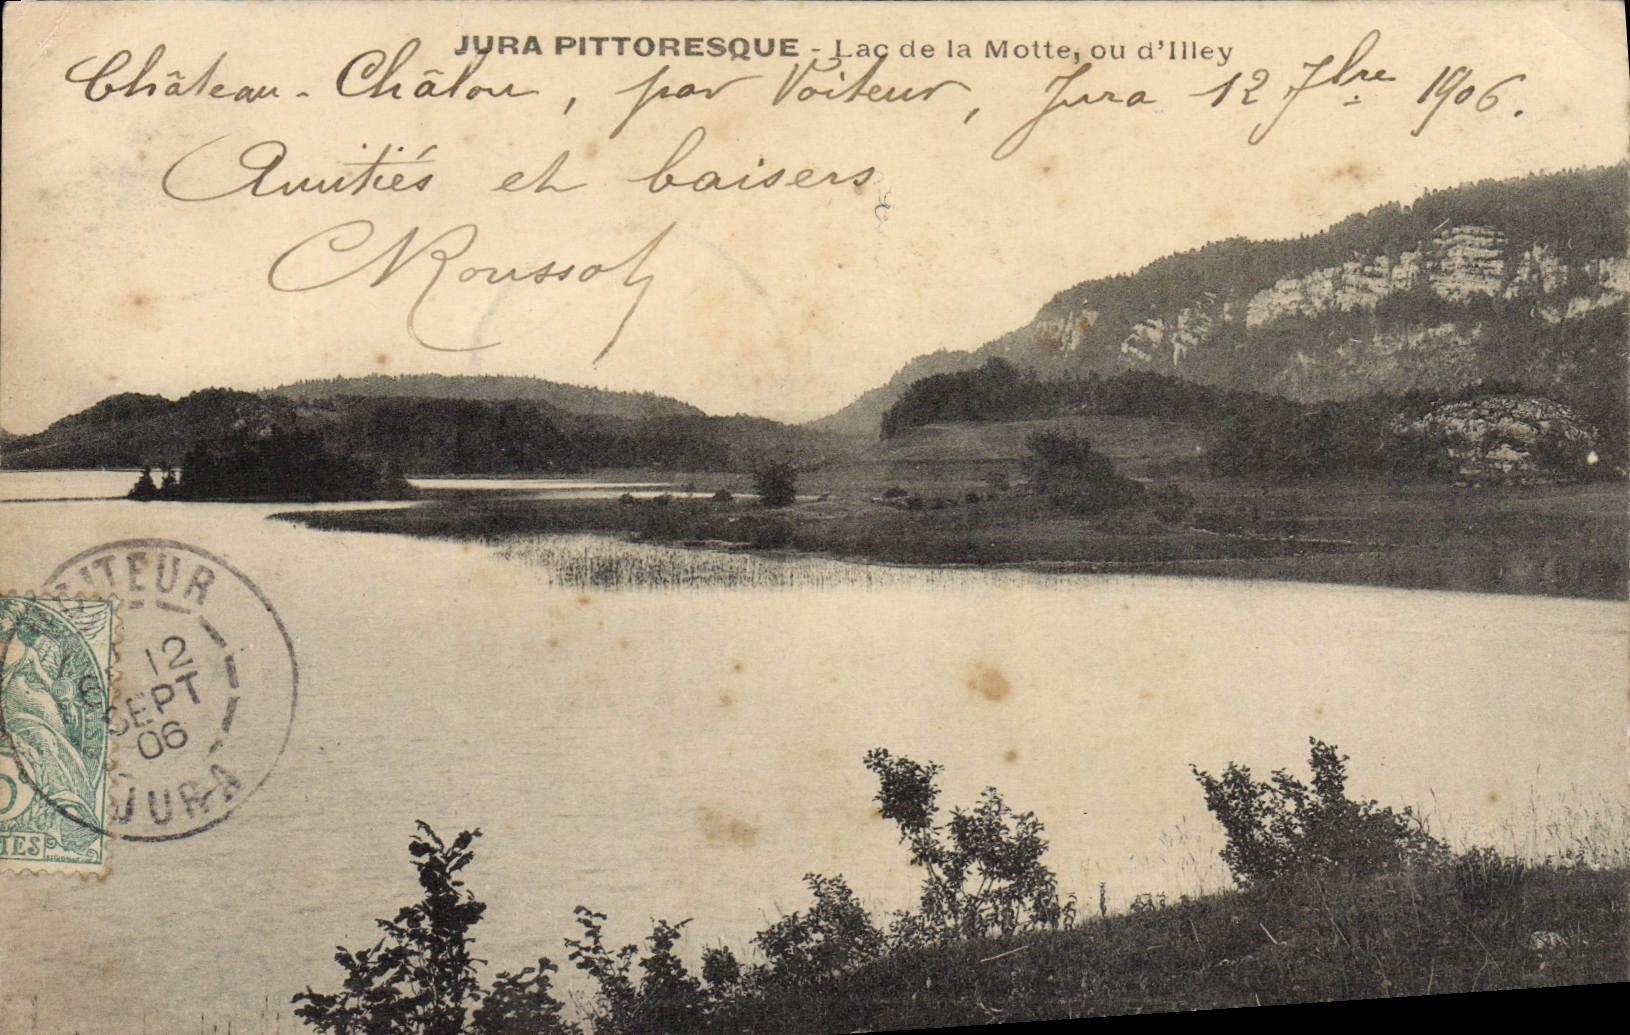 JURA PITTORESQUE - Lac de la Motte, ou d'Illey
Château-Châlon, par Voiteur, Jura 12 7bre 1906.
Amitiés et baisers
Roussot
OITEUR
12
SEPT
06
JURA